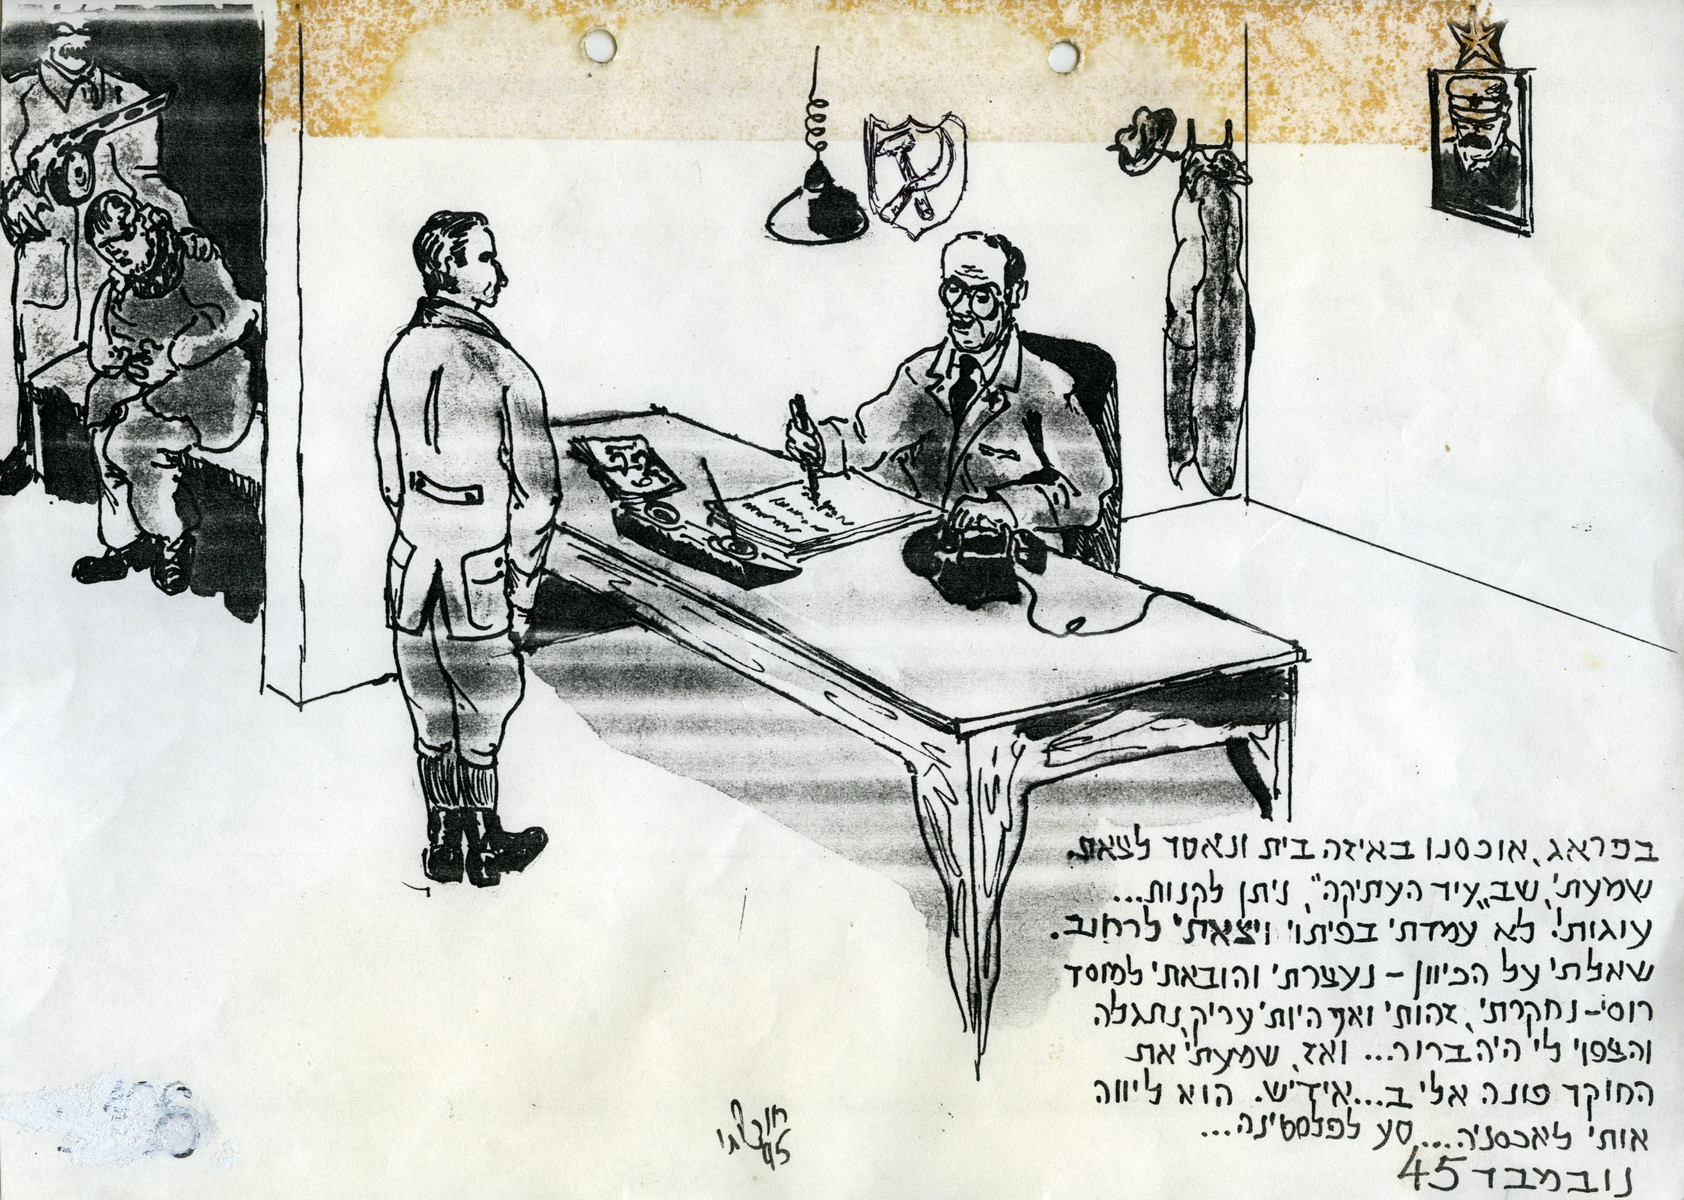 בפראג, אוכסנו באיזה בית ונאסר לצאת.
שמעתי, שב„עיר העתיקה", ניתן לקנות...
עוגות! לא עמדתי בפיתוי ויצאתי לרחוב.
שאלתי על הכיוון – נעצרתי והובאתי למוסד
רוסי – נחקרתי, זהותי ואף היותי עריק, נתגלה
והצפוי לי היה ברור... ואז, שמעתי את
החוקר פונה אלי ב...אידיש. הוא ליווה
אותי לאכסניה... סע לפלסטינה...
נובמבר 45